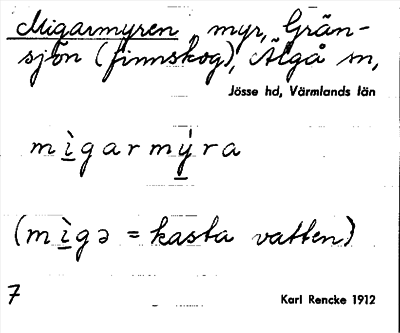 Migarmyren, myr, Grän-
sjön (finnskog), Älgå sn,
Jösse hd, Värmlands län
mì̱garmý̱ra
(mì̱gə = kasta vatten)
7
Karl Rencke 1912